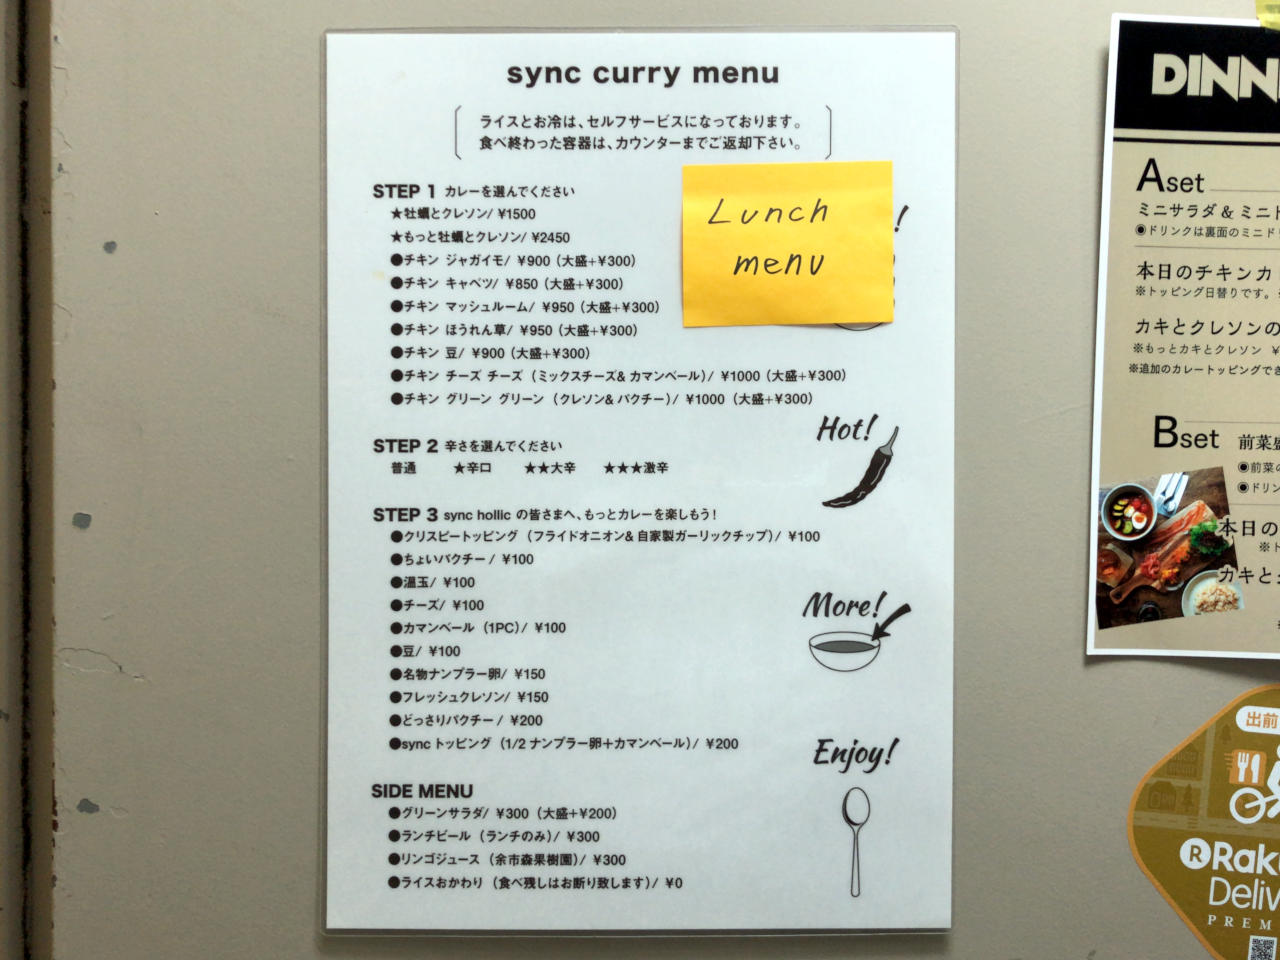 sync curry menu
ライスとお冷は、セルフサービスになっております。
食べ終わった容器は、カウンターまでご返却下さい。
STEP 1 カレーを選んでください
★牡蠣とクレソン/ ¥1500
★もっと牡蠣とクレソン/ ¥2450
●チキン ジャガイモ/ ¥900（大盛+¥300）
●チキン キャベツ/ ¥850（大盛+¥300）
●チキン マッシュルーム/ ¥950（大盛+¥300）
●チキン ほうれん草/ ¥950（大盛+¥300）
●チキン 豆/ ¥900（大盛+¥300）
●チキン チーズ チーズ（ミックスチーズ& カマンベール）/ ¥1000（大盛+¥300）
●チキン グリーン グリーン（クレソン& パクチー）/ ¥1000（大盛+¥300）
Lunch
menu
!
STEP 2 辛さを選んでください
普通 ★辛口 ★★大辛 ★★★激辛
Hot!
STEP 3 sync hollic の皆さまへ、もっとカレーを楽しもう！
●クリスピートッピング（フライドオニオン& 自家製ガーリックチップ）/ ¥100
●ちょいパクチー / ¥100
●温玉/ ¥100
●チーズ/ ¥100
●カマンベール（1PC）/ ¥100
●豆/ ¥100
●名物ナンプラー卵/ ¥150
●フレッシュクレソン/ ¥150
●どっさりパクチー / ¥200
●sync トッピング（1/2 ナンプラー卵＋カマンベール）/ ¥200
More!
Enjoy!
SIDE MENU
●グリーンサラダ/ ¥300（大盛+¥200）
●ランチビール（ランチのみ）/ ¥300
●リンゴジュース（余市森果樹園）/ ¥300
●ライスおかわり（食べ残しはお断り致します）/ ¥0
DINN
A set
ミニサラダ & ミニド
◉ドリンクは裏面のミニド
本日のチキンカ
※トッピング日替りです。
カキとクレソンの
※もっとカキとクレソン ¥
※追加のカレートッピングでき
B set 前菜盛
◉前菜の
◉ドリン
本日の
※ト
カキと
出前
R Rak
Deliv
PREM